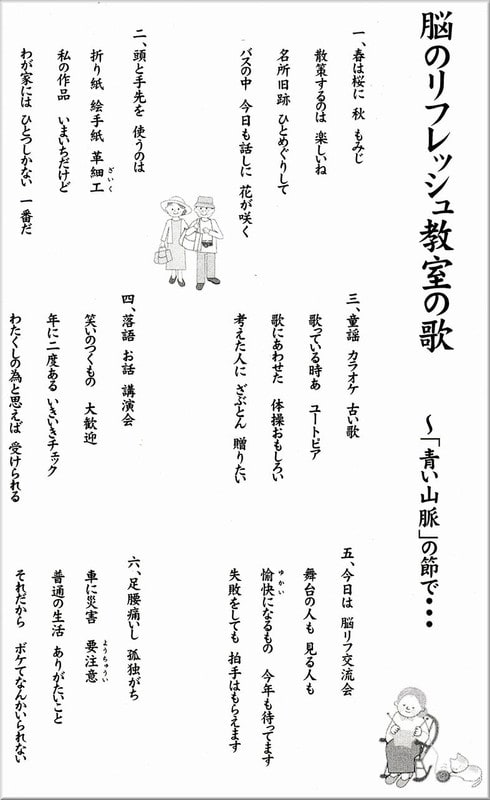 脳のリフレッシュ教室の歌
～「青い山脈」の節で・・・
一、春は桜に 秋 もみじ
散策するのは 楽しいね
名所旧跡 ひとめぐりして
バスの中 今日も話しに 花が咲く
二、頭と手先を 使うのは
折り紙 絵手紙 革細工
ざいく
私の作品 いまいちだけど
わが家には ひとつしかない 一番だ
三、童謡 カラオケ 古い歌
歌っている時あ ユートピア
歌にあわせた 体操おもしろい
考えた人に ざぶとん 贈りたい
四、落語 お話 講演会
笑いのつくもの 大歓迎
年に二度ある いきいきチェック
わたくしの為と思えば 受けられる
五、今日は 脳リフ交流会
舞台の人も 見る人も
愉快になるもの 今年も待ってます
ゆかい
失敗をしても 拍手はもらえます
六、足腰痛いし 孤独がち
車に災害 要注意
ようちゅうい
普通の生活 ありがたいこと
それだから ボケてなんかいられない